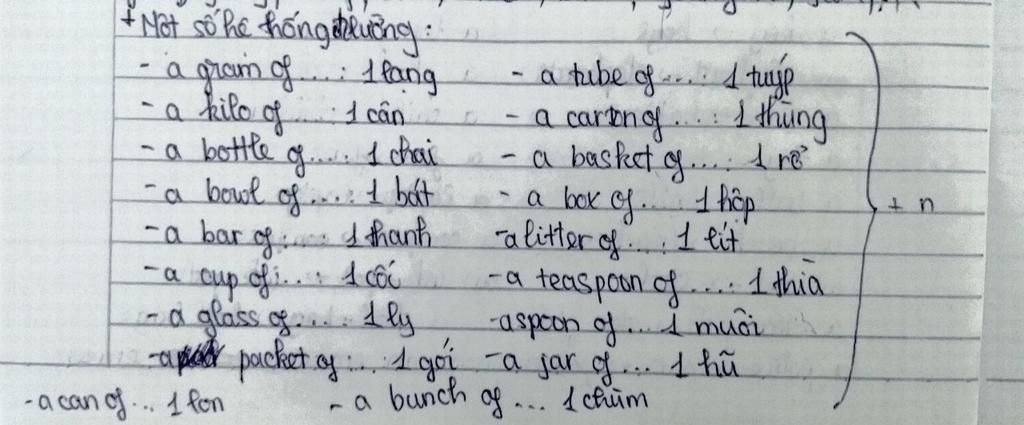 + Một số hệ thống đo lường:
- a gram of ....: 1 lạng - a tube of ....: 1 tuýp
- a kilo of ....: 1 cân - a carton of ....: 1 thùng
- a bottle of ....: 1 chai - a basket of ....: 1 rổ
- a bowl of ....: 1 bát - a box of ...: 1 hộp
- a bar of ...: 1 thanh - a litter of ....: 1 lít
- a cup of ...: 1 cốc - a teaspoon of ....: 1 thìa
- a glass of ....: 1 ly - a spoon of ... 1 muôi
- a packet of ...: 1 gói - a jar of ... 1 hũ
- a can of ... 1 lon - a bunch of ... 1 chùm
+ n